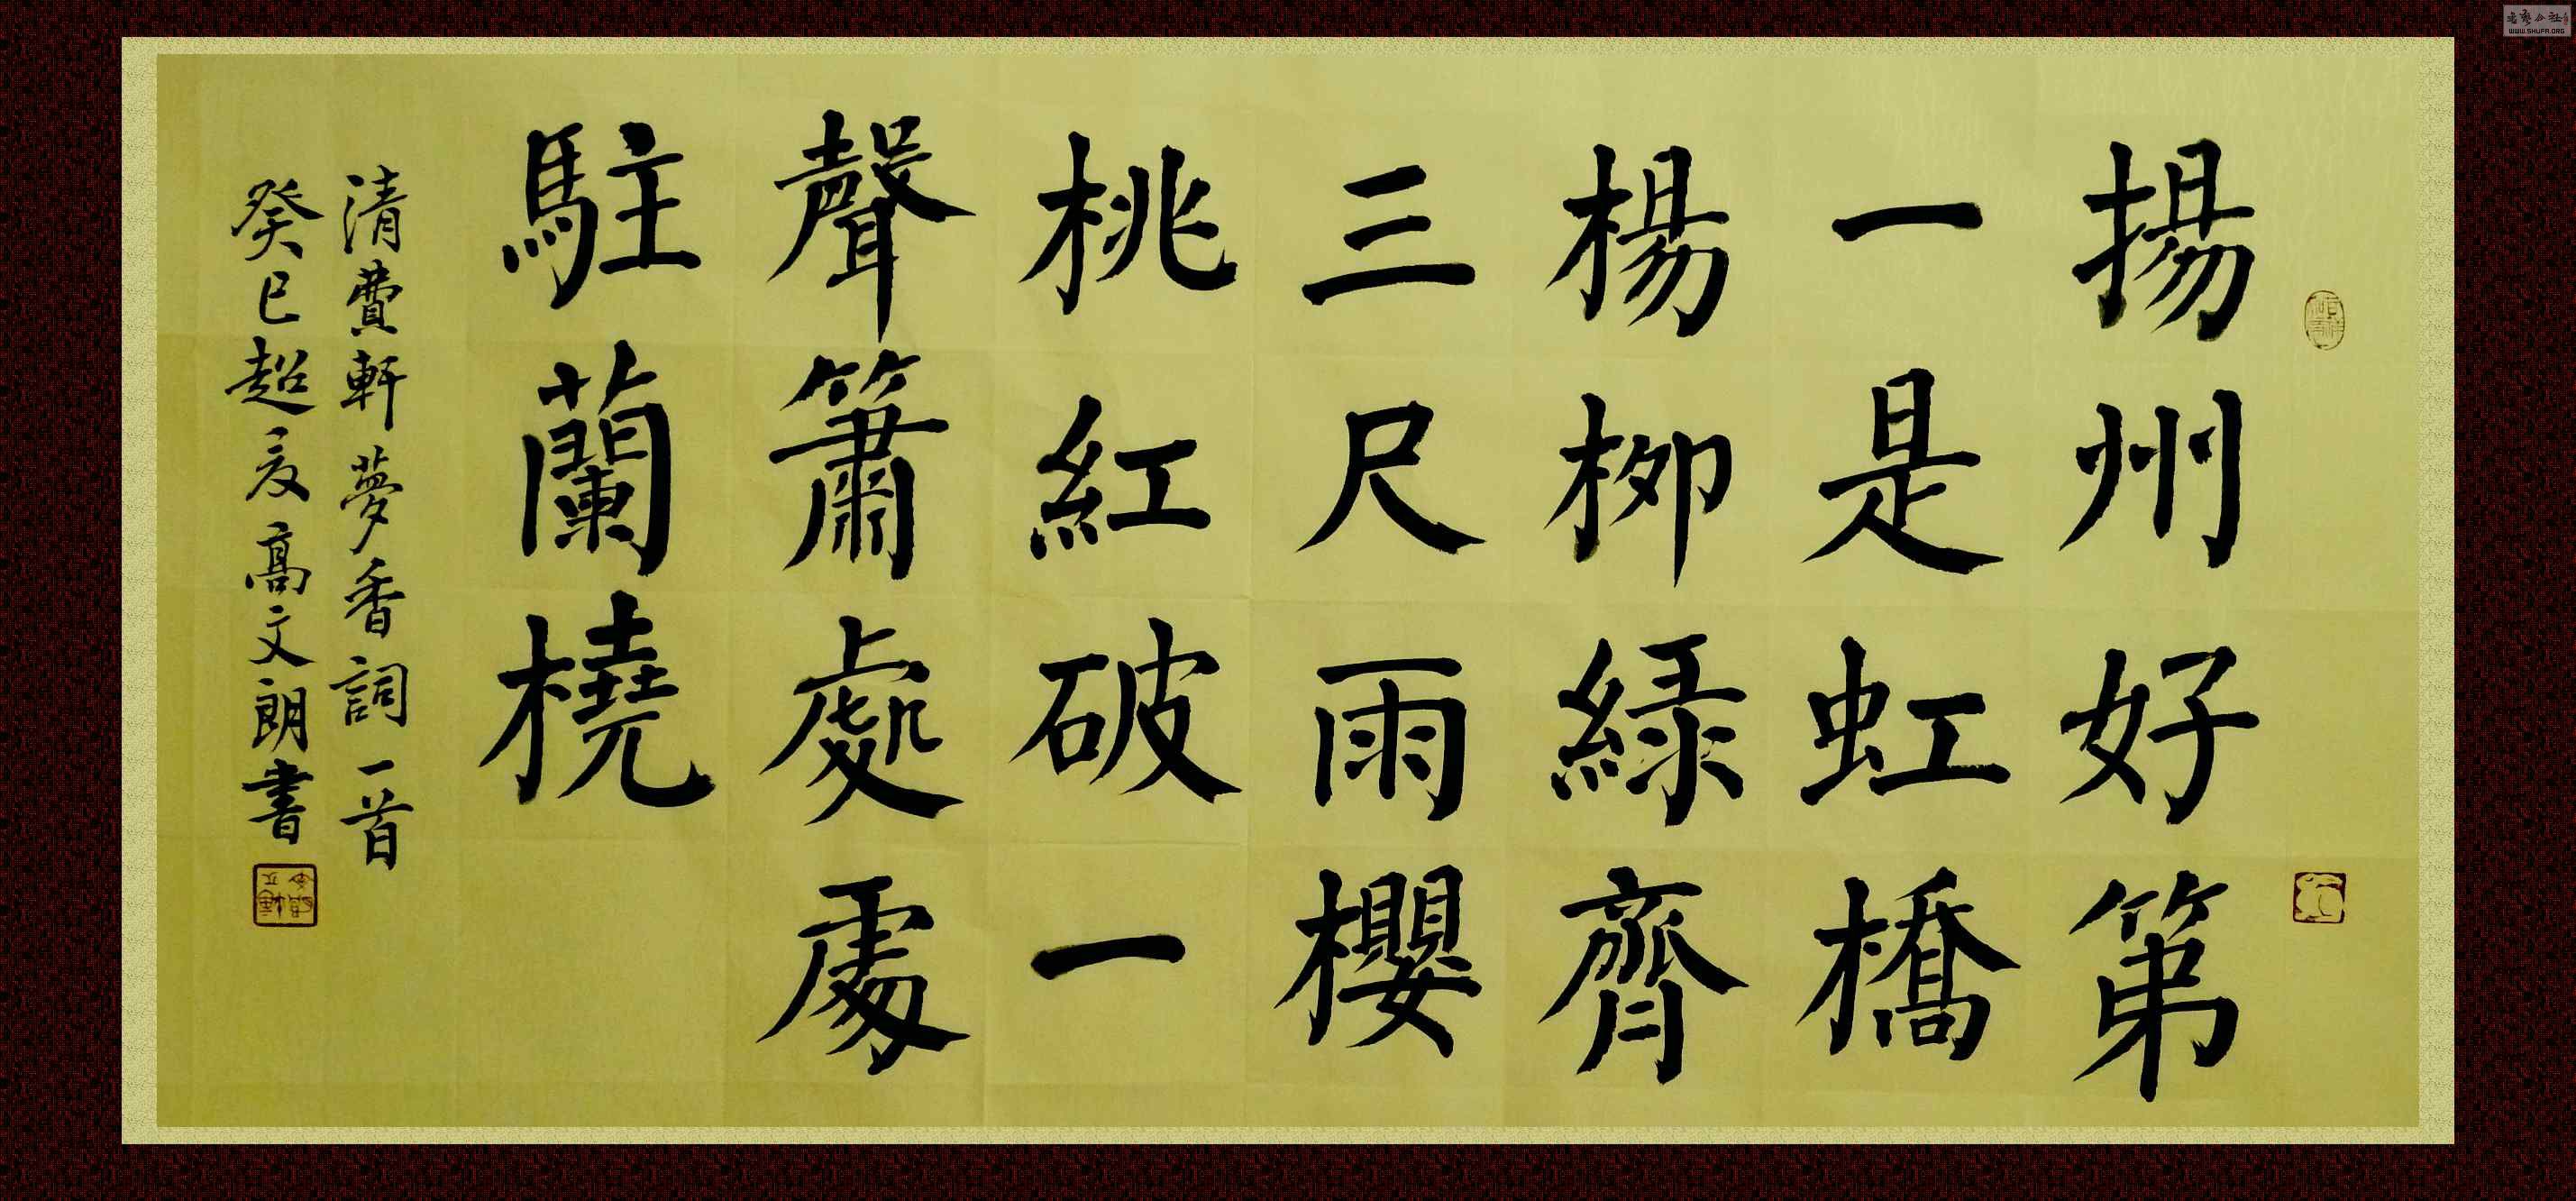 揚州好第
一是虹橋
楊柳綠齊
三尺雨櫻
桃紅破一
聲簫處處
駐蘭橈
清費軒夢香詞一首
癸巳超爰高文朗書
WWW.SHUFA.ORG